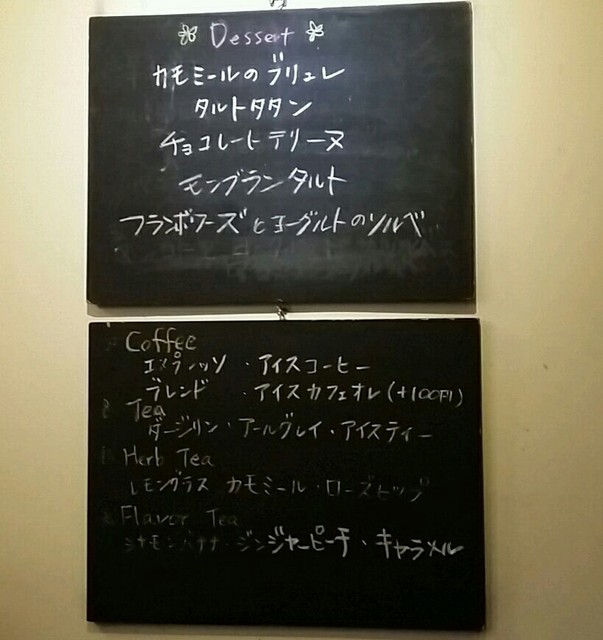 Dessert
カモミールのブリュレ
タルトタタン
チョコレートテリーヌ
モンブランタルト
フランボワーズとヨーグルトのソルベ
Coffee
エスプレッソ ・アイスコーヒー
ブレンド ・アイスカフェオレ(+100円)
Tea
ダージリン・アールグレイ・アイスティー
Herb Tea
レモングラス カモミール・ローズヒップ
Flavor Tea
シナモンバナナ・ジンジャーピーチ・キャラメル